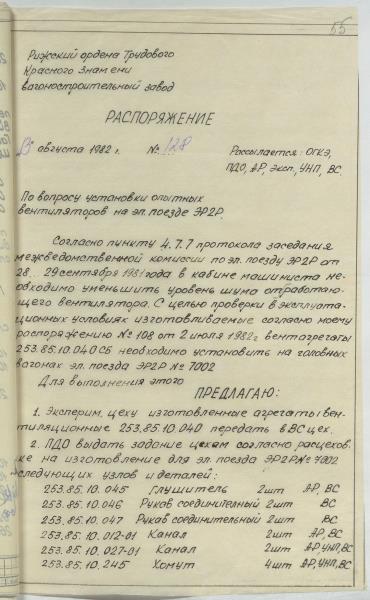 55
Рижский ордена Трудового
Красного Знамени
вагоностроительный завод
РАСПОРЯЖЕНИЕ
13 августа 1982 г. № 128 Рассылается: ОГКЭ,
ПДО, АР, Эксп., УНП, ВС.
По вопросу установки опытных
вентиляторов на эл. поезде ЭР2Р.
Согласно пункту 4.7.7 протокола заседания
межведомственной комиссии по эл. поезду ЭР2Р от
28... 29 сентября 1981 года в кабине машиниста не-
обходимо уменьшить уровень шума от работаю-
щего вентилятора. С целью проверки в эксплуата-
ционных условиях изготавливаемые согласно моему
распоряжению № 108 от 2 июля 1982г вентагрегаты
253.85.10.040 СБ необходимо установить на головных
вагонах эл. поезда ЭР2Р № 7002
Для выполнения этого
ПРЕДЛАГАЮ:
1. Эксперим. цеху изготовленные агрегаты вен-
тиляционные 253.85.10.040 передать в ВС цех.
2. ПДО выдать задание цехам согласно расцехов-
ке на изготовление для эл. поезда ЭР2Р № 7002
следующих узлов и деталей:
253.85.10.045 Глушитель 2шт АР, ВС
253.85.10.046 Рукав соединительный 2шт ВС
253.85.10.047 Рукав соединительный 2шт ВС
253.85.10.012-01 Канал 2шт АР, ВС
253.85.10.027-01 Канал 2шт АР, УНП, ВС
253.85.10.245 Хомут 4шт АР, УНП, ВС